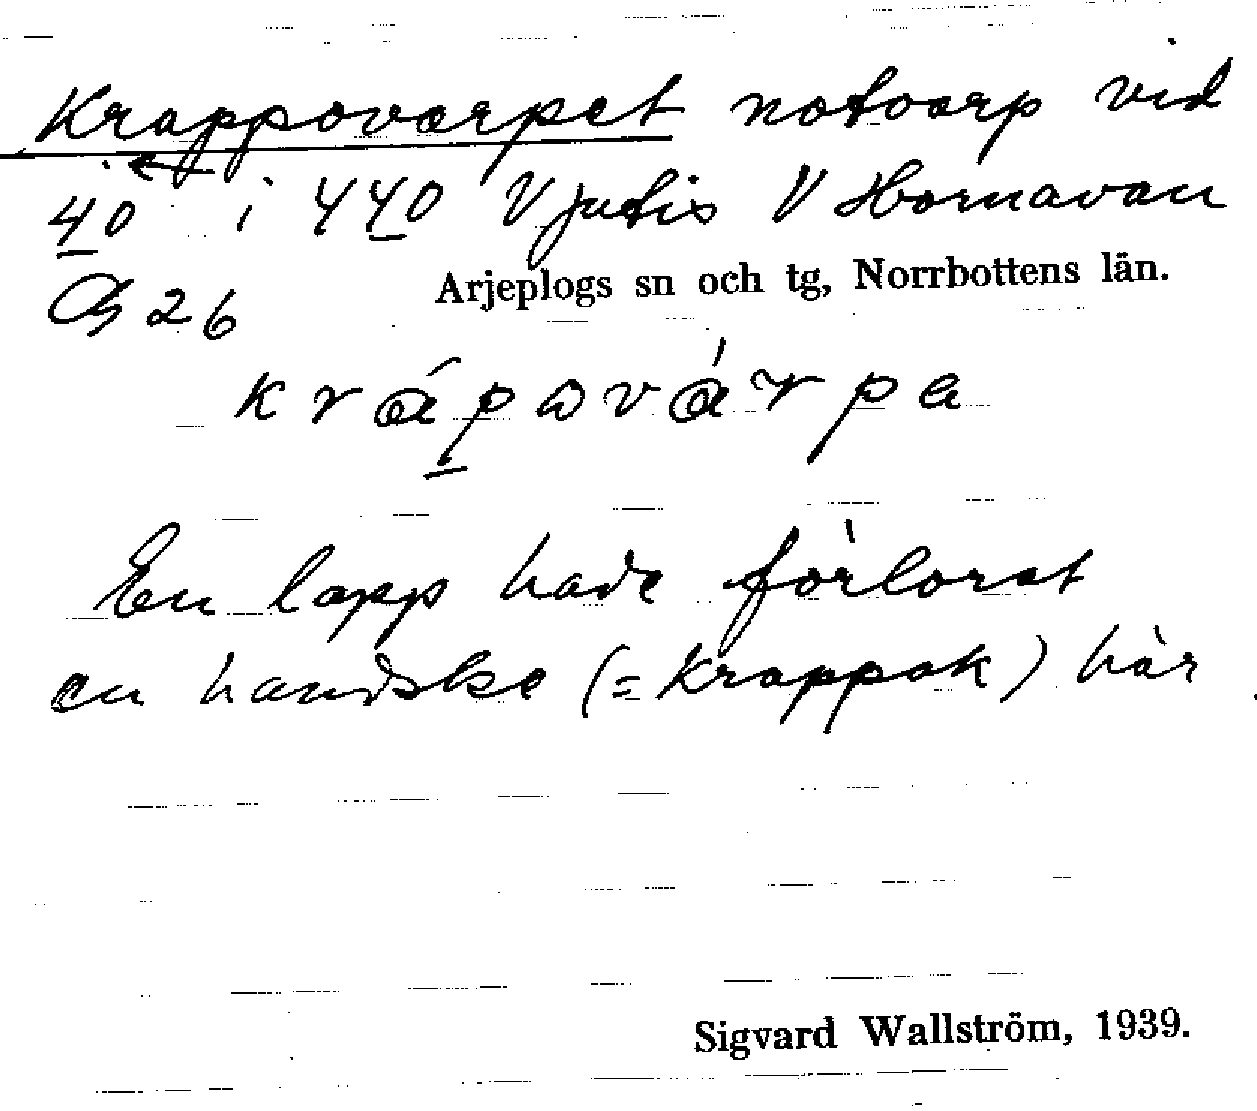 Krappovarpet notvarp vid
40 i 440 V jutis V Hornavan
Arjeplogs sn och tg, Norrbottens län.
26
kråpovårpa
En lapp hade förlorat
en handske (= krappok) här
Sigvard Wallström, 1939.